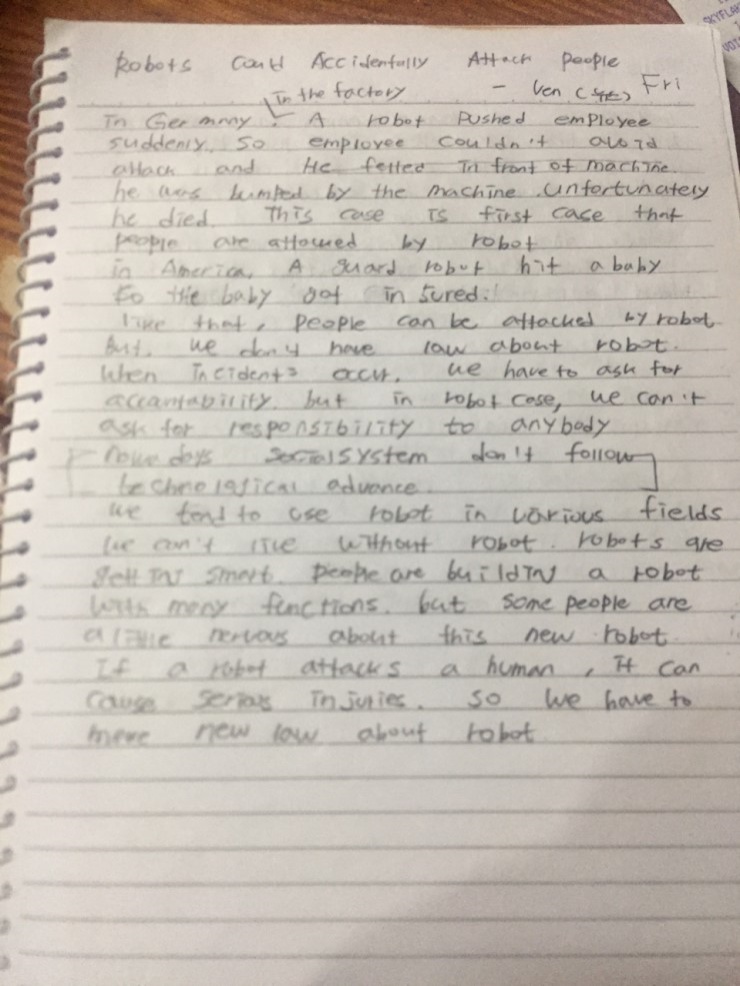 Robots Could Accidentally Attack People
In the factory - Ven Fri
In Germany. A robot pushed employee
suddenly. so employee couldn't avoid
attack and He felled in front of machine.
he was bumped by the machine. unfortunately
he died. This case is first case that
people are attacked by robot
in America. A guard robot hit a baby
so the baby got insured.
like that, people can be attacked by robot.
But. we don't have law about robot.
When incidents occur. we have to ask for
accantability. but in robot case, we can't
ask for responsibility to anybody
nowadays social system don't follow
technological advance.
we tend to use robot in various fields
we can't live without robot. robots are
getting smart. people are building a robot
with many functions. but some people are
a little nervous about this new robot.
If a robot attacks a human, it can
cause serious injuries. so we have to
meke new law about robot
SKYFLAK